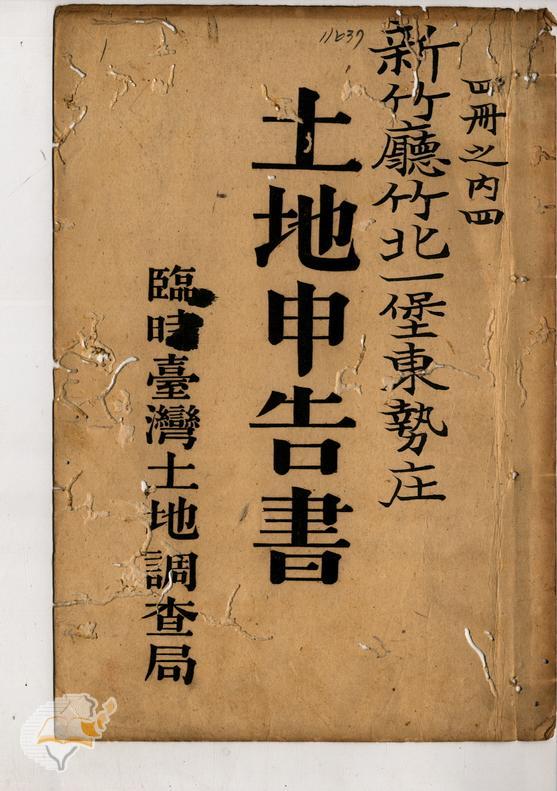 四冊之内四
新竹廳竹北一堡東勢庄
土地申告書
臨時臺灣土地調查局